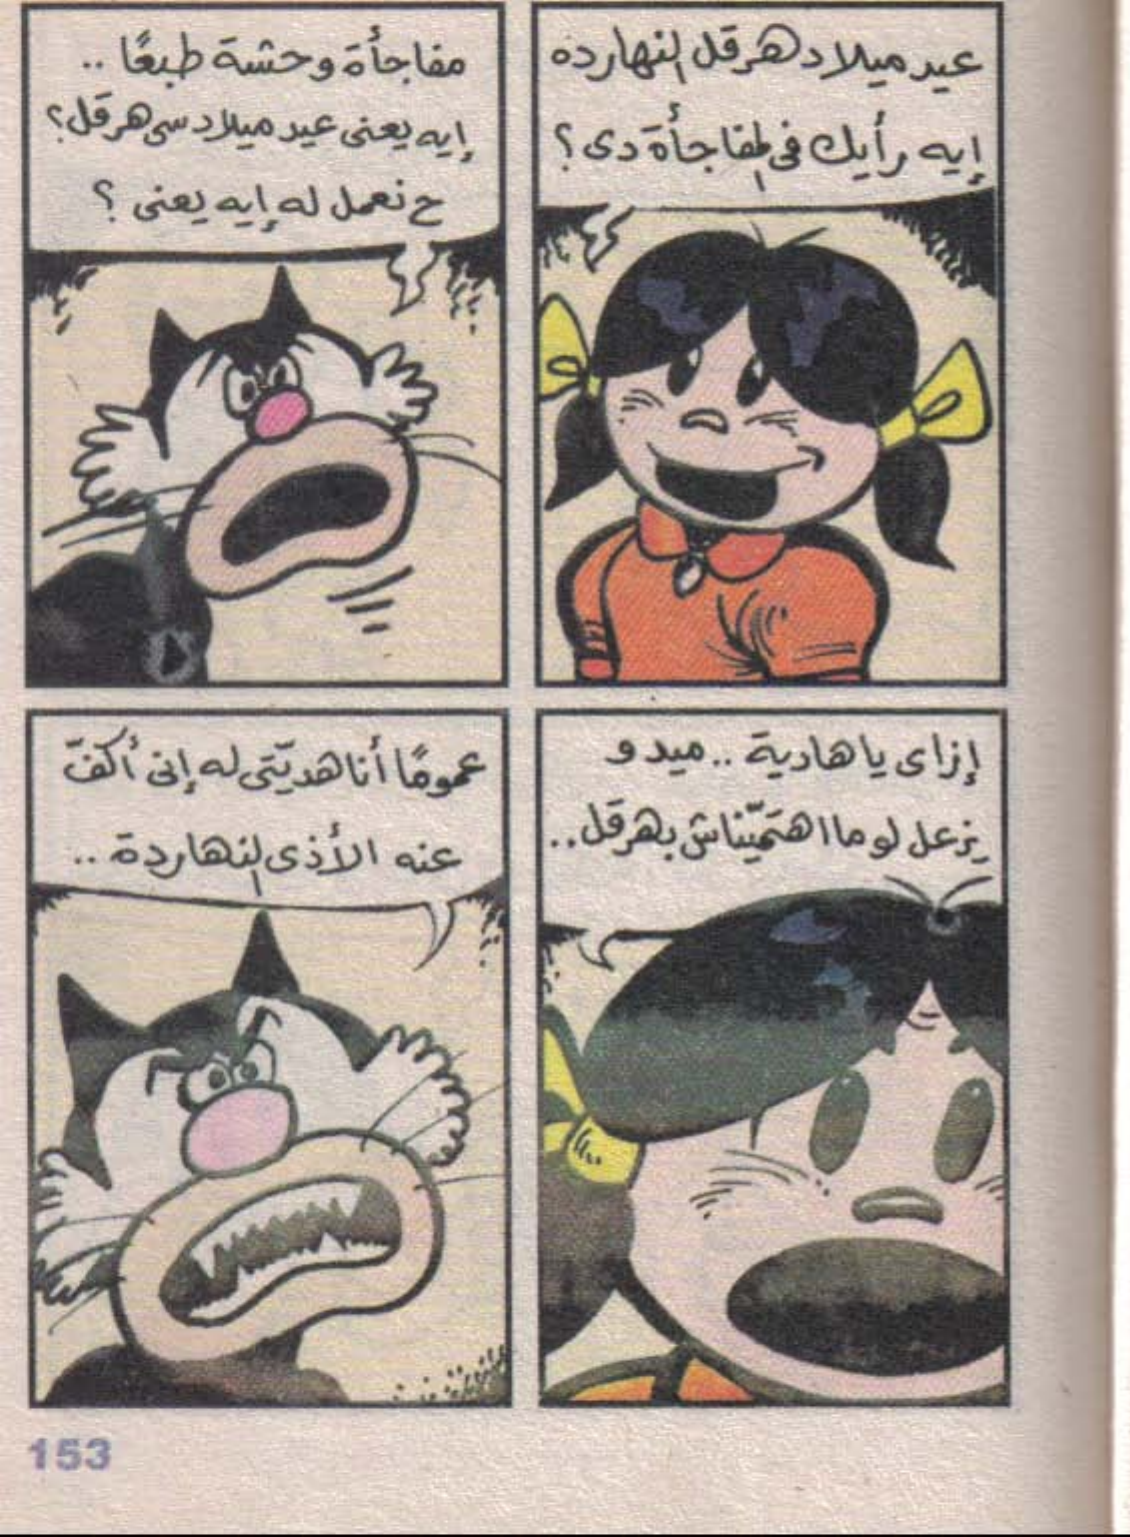 عيد ميلاد هرقل النهارده
إيه رأيك في المفاجأة دى ؟
مفاجأة وحشة طبعًا ..
إيه يعنى عيد ميلاد سى هرقل ؟
ح نعمل له إيه يعنى ؟
إزاى يا هادية .. ميدو
يزعل لو ما اهتمّيناش بهرقل ..
عمومًا أنا هديّتى له إنى أكفّ
عنه الأذى النهاردة ..
153